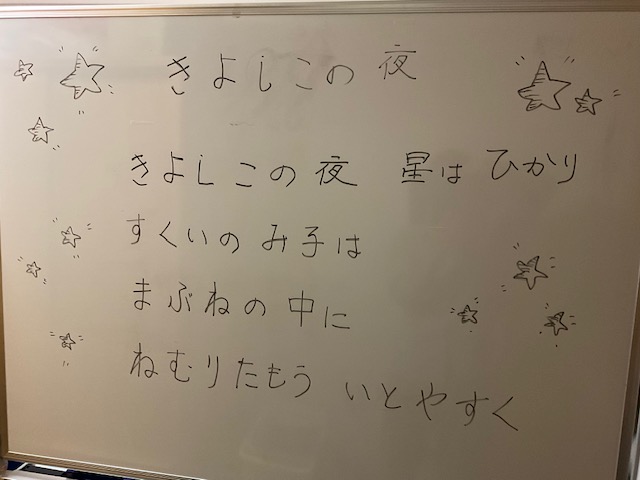 きよしこの夜
きよしこの夜 星は ひかり
すくいのみ子は
まぶねの中に
ねむりたもう いとやすく